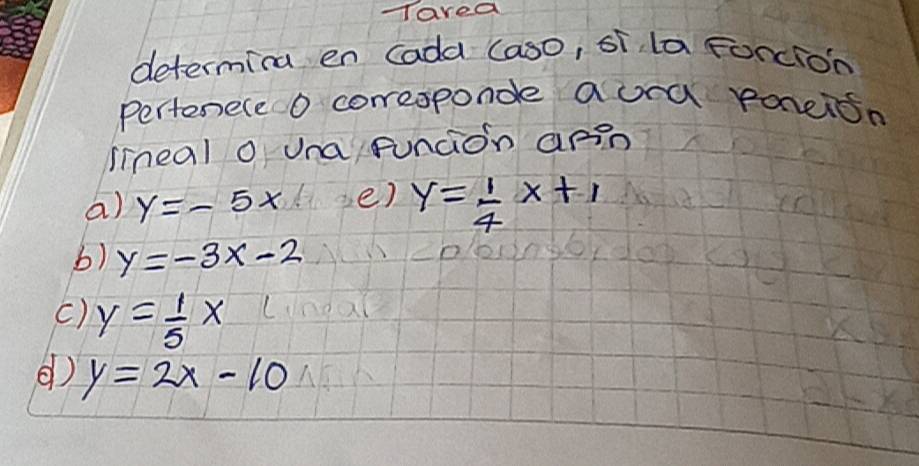 Tarea
determina en cada caso, si la Foncion
Pertenece o corresponde a una Foncion
lineal o una función afin
a) y = - 5x
e) y = 1/4 x + 1
b) y = -3x - 2
c) y = 1/5 x Lineal
d) y = 2x - 10